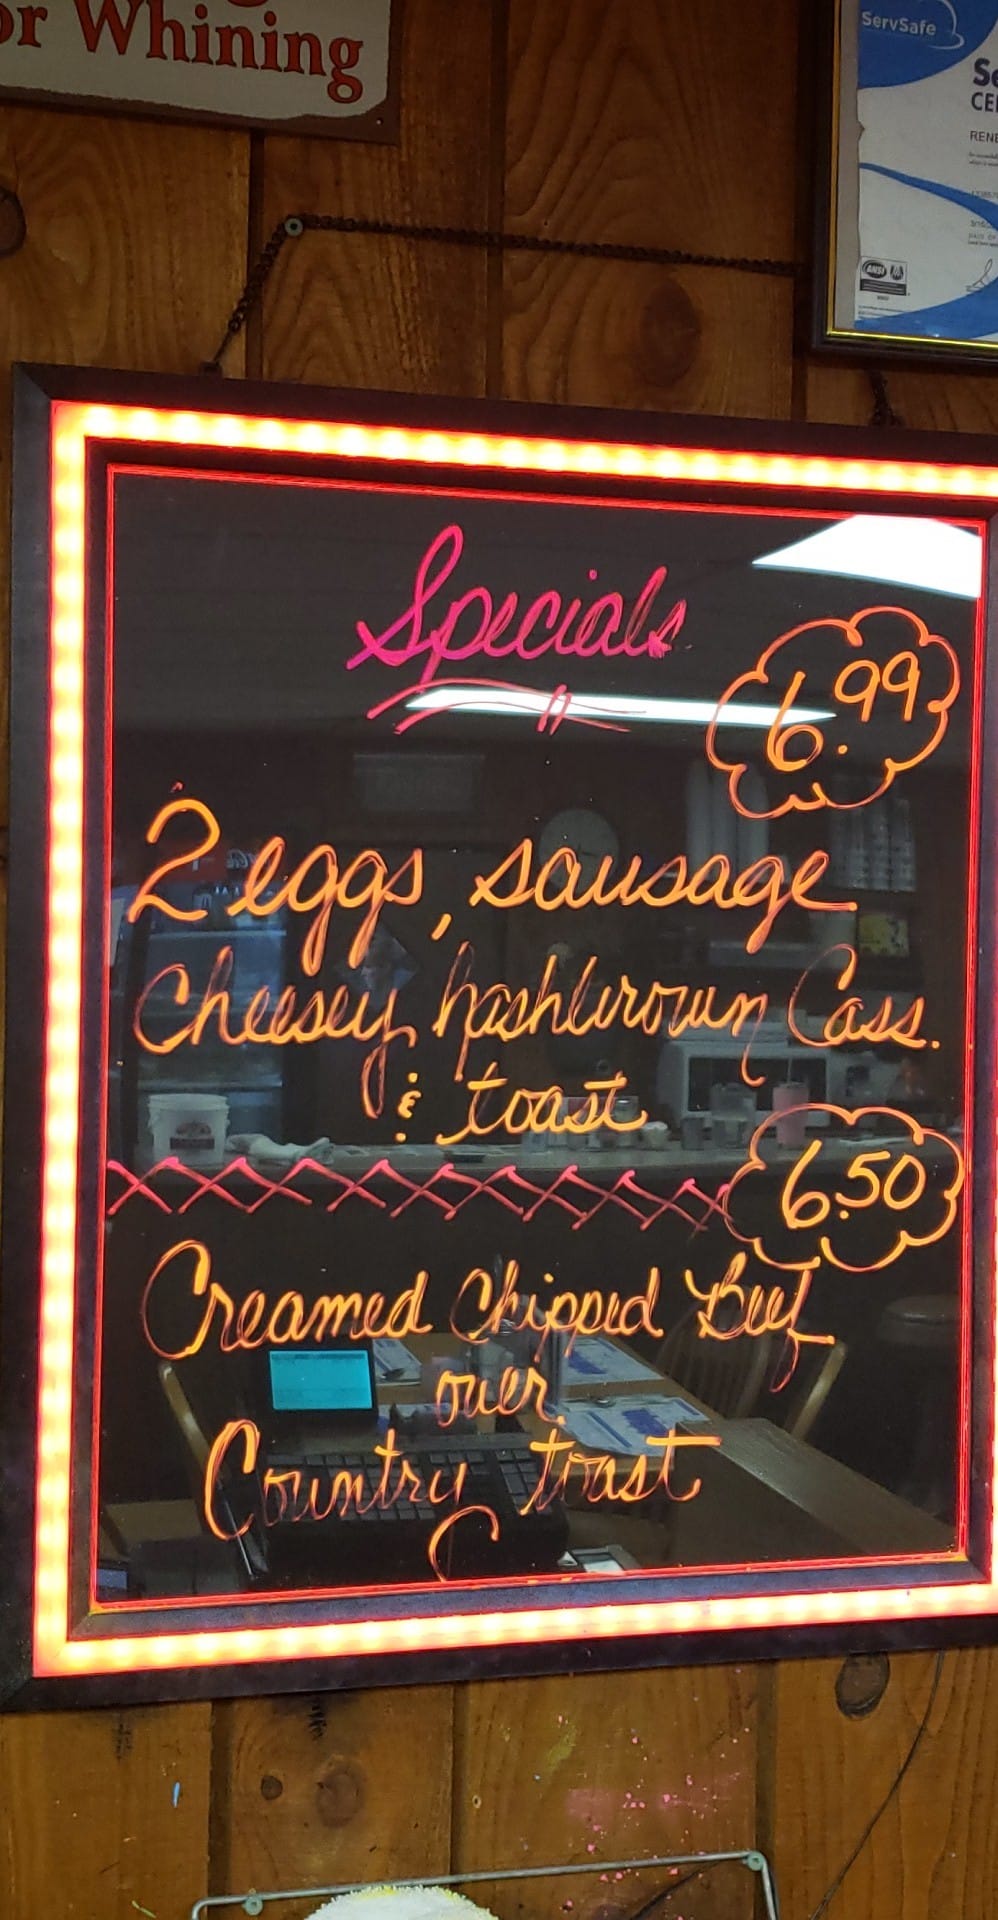 or Whining
ServSafe
CE
RENE
ANSI
Specials
6.99
2 eggs, sausage
Cheesey hashbrown Cass.
& toast
6.50
Creamed Chipped Beef
over
Country toast